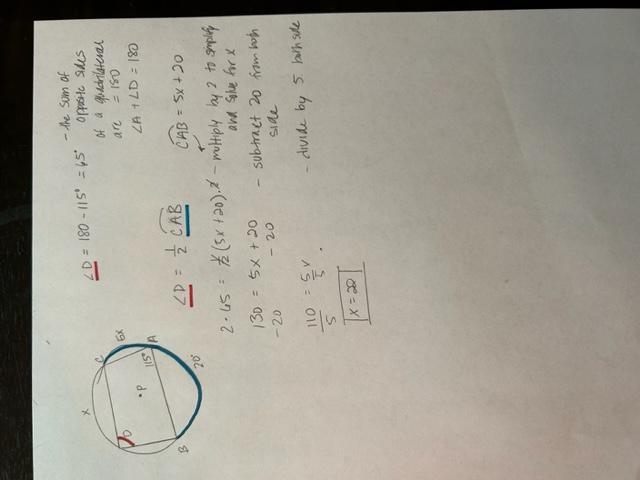 ∠D = 180 - 115° = 65° - the sum of
opposite sides
of a quadrilateral
are = 180
∠A + ∠D = 180
∠D = 1/2 CAB
CAB = 5x + 20
2 · 65 = 1/2 (5x + 20) · 2 - multiply by 2 to simplify
and solve for x
130 = 5x + 20 - subtract 20 from both
side
-20 - 20
110 = 5x - divide by 5 both side
5 5
x = 22
C
5x
A
115°
20°
B
D
x
• P